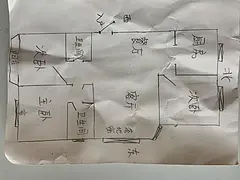 西
入户
次卧
卫生间
餐厅
厨房
北
主卧
卫生间
客厅
次卧
落地窗
东